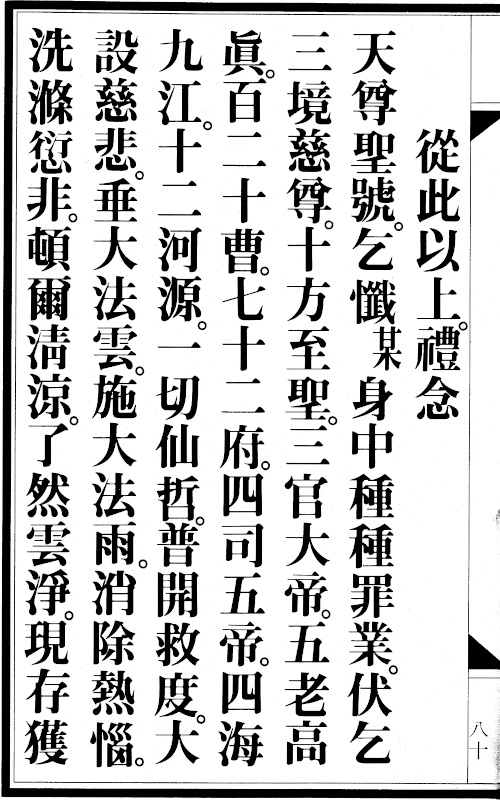 從此以上。禮念
天尊聖號。乞懺某身中種種罪業。伏乞
三境慈尊。十方至聖。三官大帝。五老高
眞。百二十曹。七十二府。四司五帝。四海
九江。十二河源。一切仙哲。普開救度。大
設慈悲。垂大法雲。施大法雨。消除熱惱。
洗滌愆非。頓爾淸涼。了然雲淨。現存獲
八十